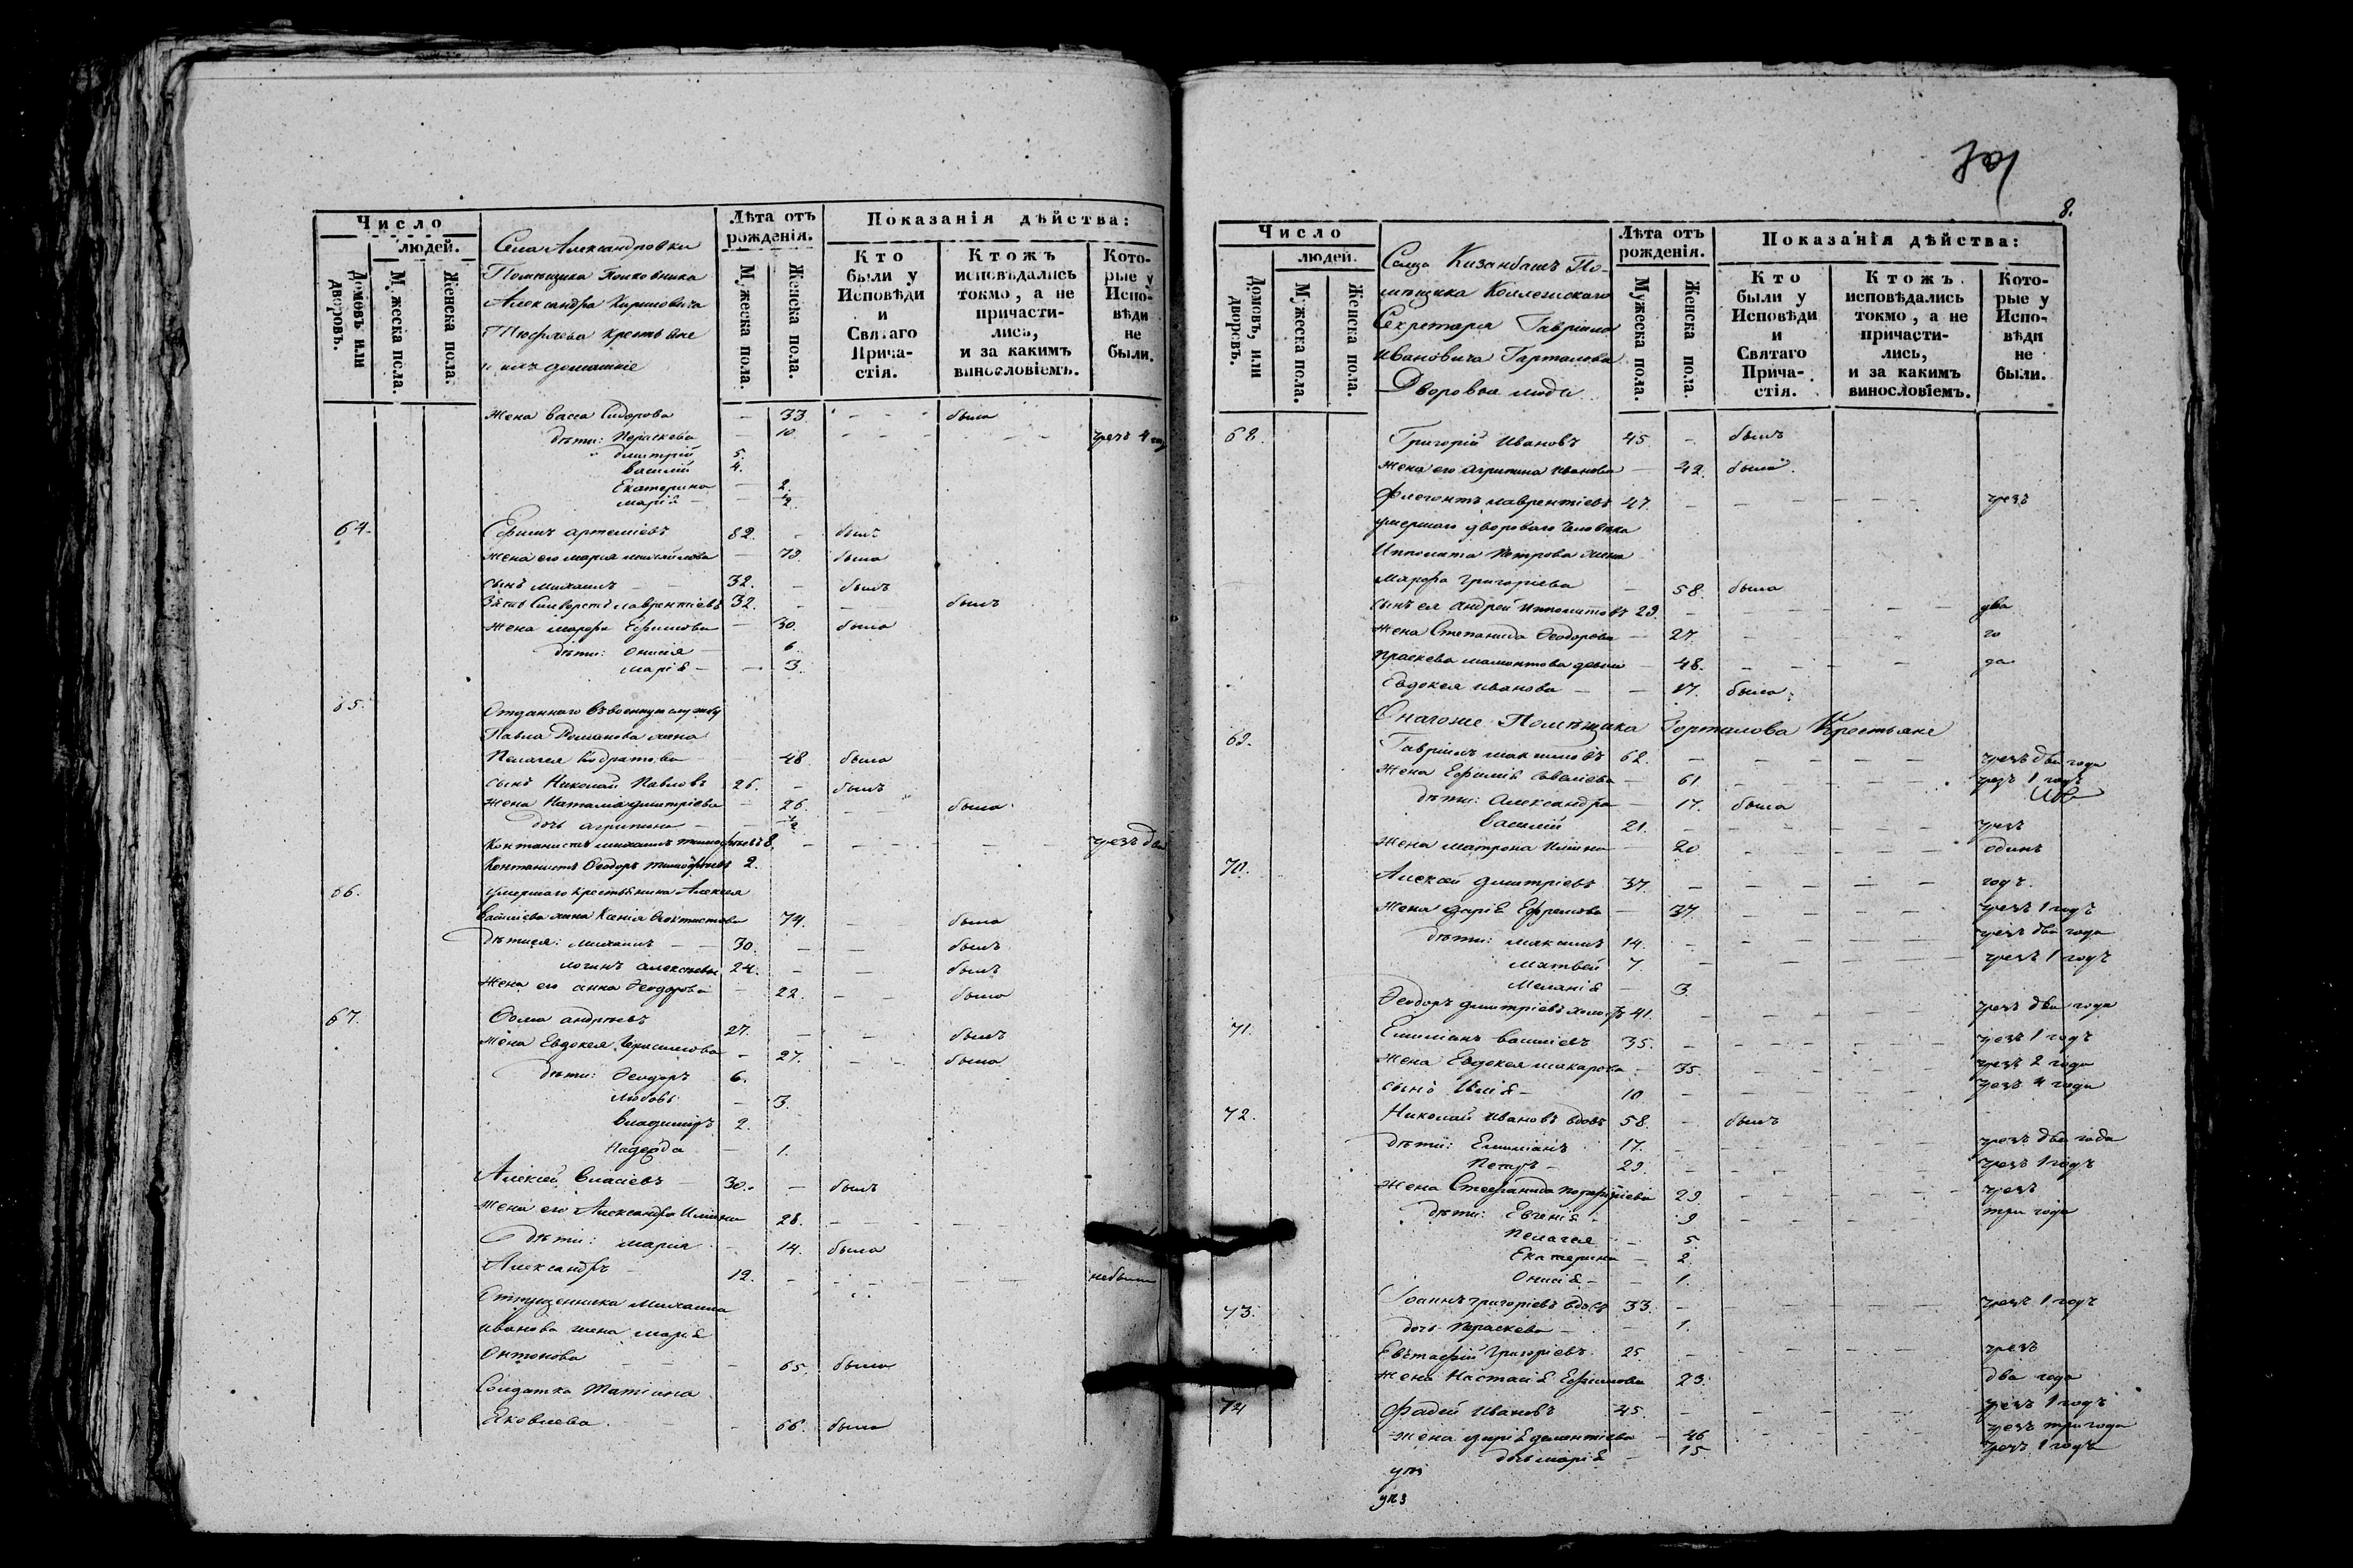 Число
людей.
Домовъ или дворовъ.
Мужеска пола.
Женска пола.
Села Александровки
Помѣщика Полковника
Александра Кириловича
крестьяне
и ихъ домашніе
Лѣта отъ рожденія.
Мужеска пола.
Женска пола.
Показанія дѣйства:
Кто были у Исповѣди и Святаго Прича- стія.
Ктожъ исповѣдались токмо, а не причасти- лись, и за какимъ винословіемъ.
Кото- рые у Испо- вѣди не были.
Жена Васса Сидорова — 33. была
дѣти: Параскева — 10. чрезъ 4
Дмитрій 5.
Василій 4.
Екатерина — 2.
Марія — 1/2
64. Ефимъ Артеміевъ 82. — былъ
Жена его Марія Михайлова — 73. была
сынъ Михаилъ 32. — былъ
Зять Силверстъ Лаврентіевъ 32. былъ
Жена Марфа Ефимова — 30. была
дѣти: Онисія — 6.
Марія — 3.
65. Отданнаго въ военную службу
Павла Романова жена
Пелагея 48 была
сынъ Николай Павловъ 26. — былъ
Жена Наталія Дмитріева — 26. была
дочь Агрипина — 1/2
Кантонистъ Михаилъ Тимофѣевъ 8. чрезъ два
Кантонистъ Ѳеодоръ Тимофѣевъ 2.
66. умершаго крестьянина Алексея
Василіева жена Ксенія Ѳеоктистова 74. была
дѣти ея: Михаилъ 30. былъ
Логинъ Алексѣевы 24. былъ
Жена его Анна Ѳеодорова — 22. была
67. Ѳома Андреевъ 27. былъ
Жена Евдокея Герасимова — 27. была
дѣти: Ѳеодоръ 6.
Любовь — 3.
Владимиръ 2.
Надежда — 1.
Алексей Власіевъ 30. — былъ
Жена его Александра Ильина 28.
дѣти: Марія — 14. была
Александръ 12. небылъ
Отпущенника Михаила
Иванова жена Марія
Антонова — 65. была
Солдатка Татіана
Яковлева — 66. была
8.
Число
людей.
Домовъ, или дворовъ.
Мужеска пола.
Женска пола.
Сельца Кизанбашъ По-
мѣщика Коллежскаго
Секретаря Гавріила
Ивановича Гарталова
Дворовые люди
Лѣта отъ рожденія.
Мужеска пола.
Женска пола.
Показанія дѣйства:
Кто были у Исповѣди и Святаго Прича- стія.
Ктожъ исповѣдались токмо, а не причасти- лись, и за какимъ винословіемъ.
Кото- рые у Испо- вѣди не были.
68. Григорій Ивановъ 45. — былъ
Жена его Агрипина Иванова — 42. была
Флегонтъ Лаврентіевъ 47. чрезъ
умершаго двороваго человѣка
Ипполита Петрова жена
Марфа Григоріева — 58. была
сынъ ея Андрей Ипполитовъ 29. два
Жена Степанида Ѳеодорова — 27. го
Праскева Мамонтова — 48. да
Евдокея Иванова — 17. была
Онагоже Помѣщика Гарталова Крестьяне
69. Гавріилъ Максимовъ 62. чрезъ два года
Жена Ефимія Савеліева — 61 чрезъ 1 годъ
дѣти: Александра — 17. была
Василій 21. чрезъ
Жена Матрона Ильина — 20 одинъ
70. Алексей Дмитріевъ 37. годъ.
Жена Дарія Ефремова — 37. чрезъ 1 годъ
дѣти: Максимъ 14. чрезъ два года
Матвей 7. чрезъ 1 годъ
Меланія — 3.
Ѳеодоръ Дмитріевъ 41. чрезъ два года
71. Емиліанъ Василіевъ 35. чрезъ 1 годъ
Жена Евдокея Макарова — 35. чрезъ 2 года
сынъ Илія 10 чрезъ 4 года
72. Николай Ивановъ вдовъ 58. — былъ
дѣти: Емиліанъ 17. чрезъ два года
Петръ 29. чрезъ 1 годъ
Жена Стефанида 29 чрезъ
дѣти: Евгенія 9 три года
Пелагея — 5.
Екатерина — 2.
Онисія — 1.
73. Іоаннъ Григоріевъ вдовъ 33. чрезъ 1 годъ
дочь Параскева — 1.
Евстафій Григоріевъ 25. чрезъ
Жена Настасія Ефимова 23. два года
74 Фадей Ивановъ 45. чрезъ 1 годъ
Жена Дарія — 46 чрезъ три года
дочь Марія — 15. чрезъ 1 годъ